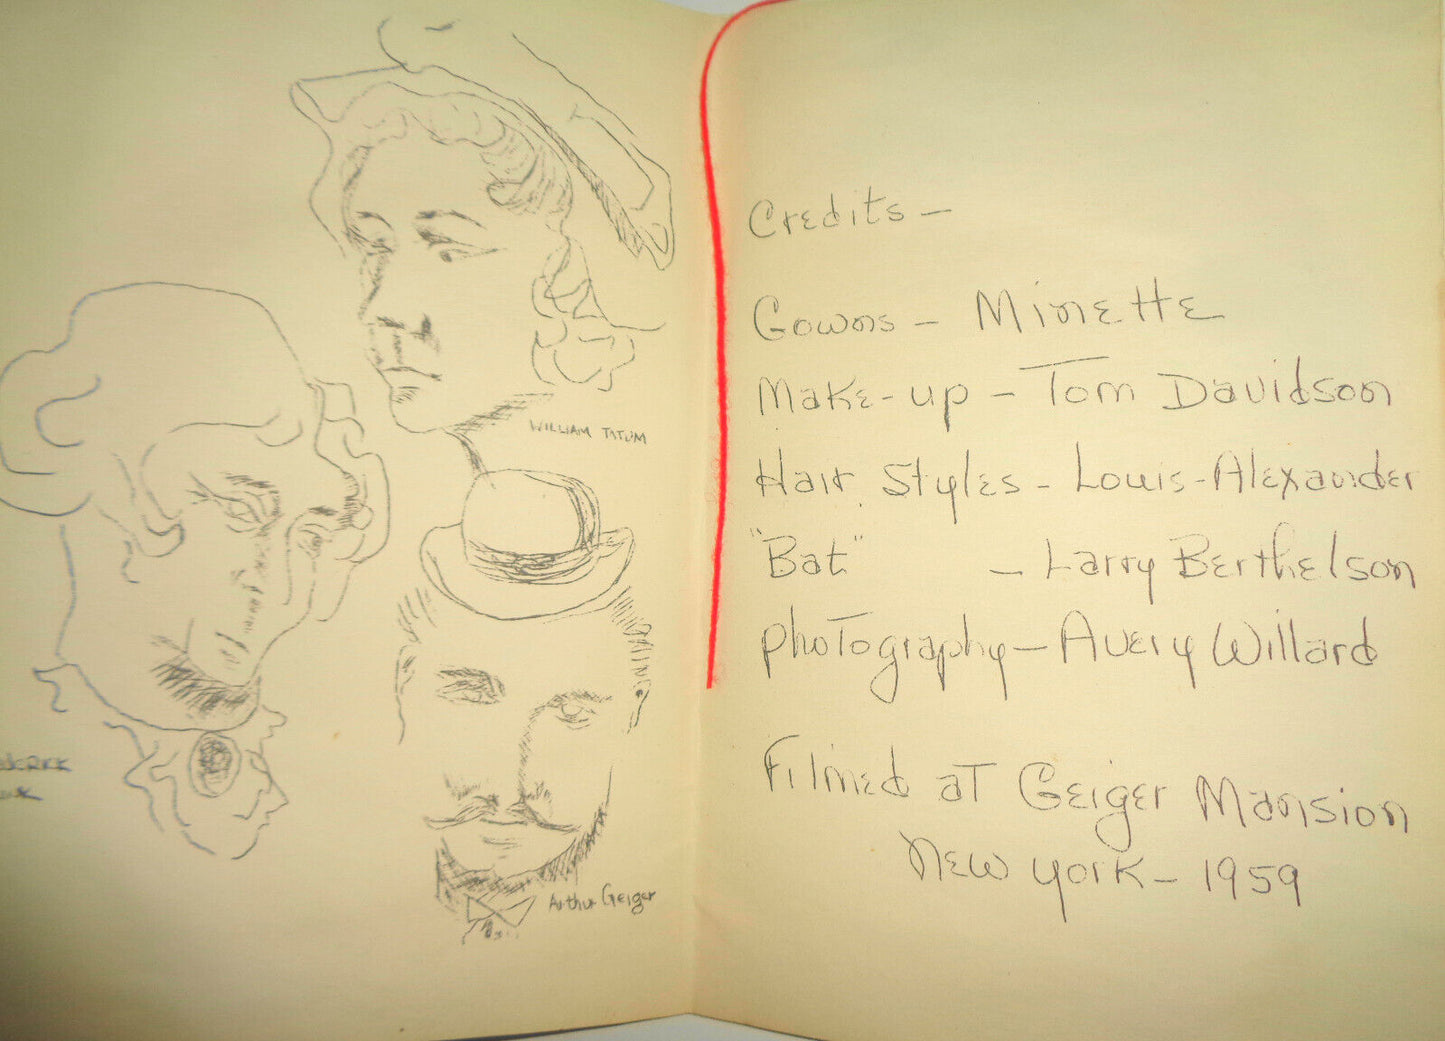 WILLIAM TATUM
Arthur Geiger
Credits –
Gowns – Minette
Make-up – Tom Davidson
Hair Styles – Louis-Alexander
"Bat" – Larry Berthelson
photography – Avery Willard
Filmed at Geiger Mansion
New York – 1959